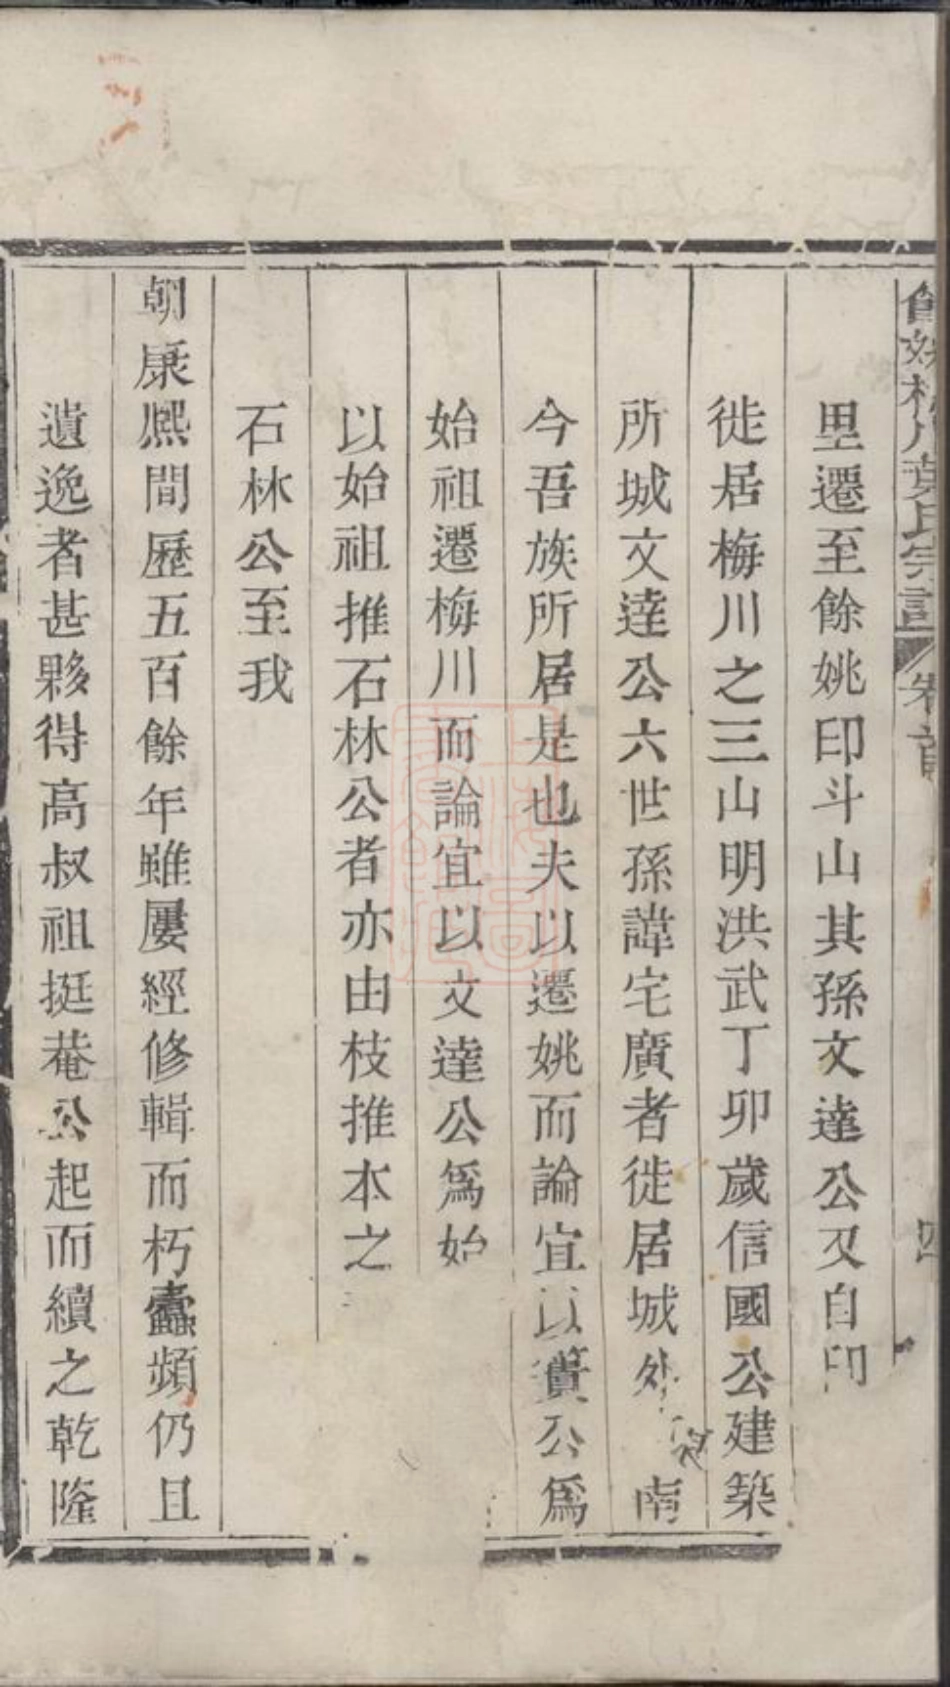 餘姚梅川葉氏宗譜 卷首 四
里遷至餘姚印斗山其孫文達公又自印
徙居梅川之三山明洪武丁卯歲信國公建築
所城文達公六世孫諱宅廣者徙居城外 南
今吾族所居是也夫以遷姚而論宜以簣公爲
始祖遷梅川而論宜以文達公爲始
以始祖推石林公者亦由枝推本之
石林公至我
朝康熙間歷五百餘年雖屢經修輯而朽蠹頻仍且
遺逸者甚夥得高叔祖挺菴公起而續之乾隆